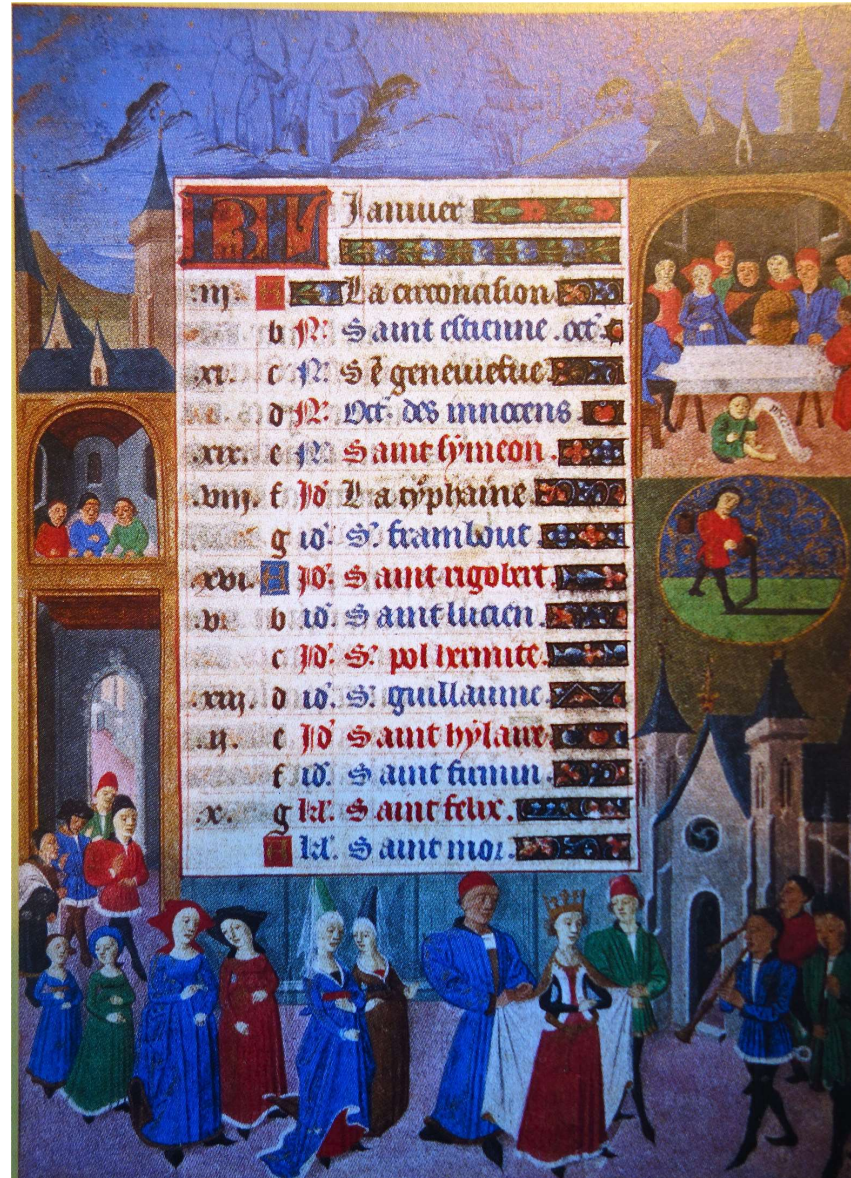 KL Januier
.iij. A La circoncision
b N. Saint estienne .oct.
.xi. c N. S ē geneuiefue
d N. Oct. des innocens
.xix. e N. Saint symeon.
.viij. f Id. La typhaine
g id. S. frambout
.xvi. A Id. Saint rigobert
.v. b id. Saint lucien.
c Id. S. pol hermite.
.xiij. d id. S. guillaume
.ij. e Id. Saint hylaire
f id. Saint firmin
.x. g kl. Saint felix.
A kl. Saint mor.